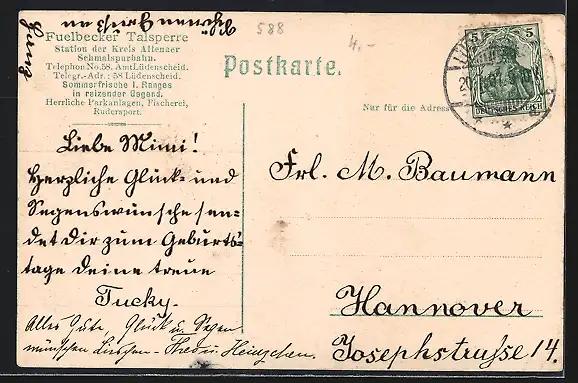 588
4.-
Fuelbecker Talsperre
Station der Kreis Altenaer
Schmalspurbahn.
Telephon No. 58. Amt Lüdenscheid.
Telegr.-Adr.: 58 Lüdenscheid.
Sommerfrische I. Ranges
in reizender Gegend.
Herrliche Parkanlagen, Fischerei,
Rudersport.
Postkarte.
Nur für die Adresse
5 5
DEUTSCHES REICH
Liebe Mimi!
Herzliche Glück- und
Segenswünsche sen-
det Dir zum Geburts-
tage deine treue
Tucky.
Alles Gute, Glück u. Segen
wünschen Lieschen - Fred u. Heinzchen.
Frl. M. Baumann
Hannover
Josephstraße 14.